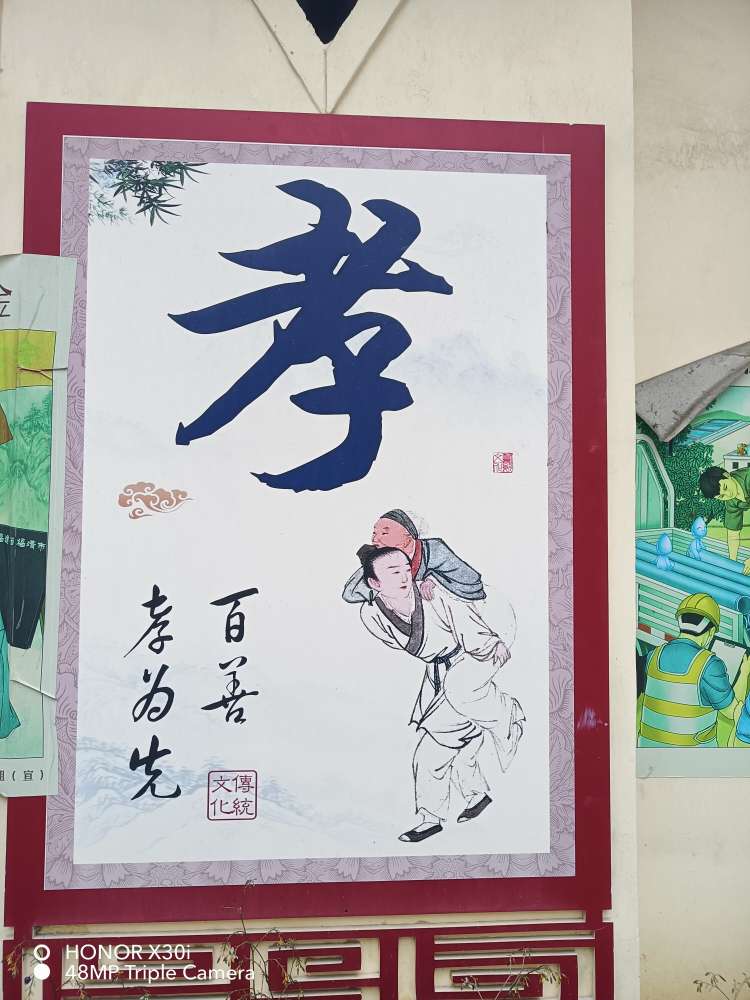 孝
百善
孝为先
傳統
文化
福清市
（宣）
HONOR X30i
48MP Triple Camera